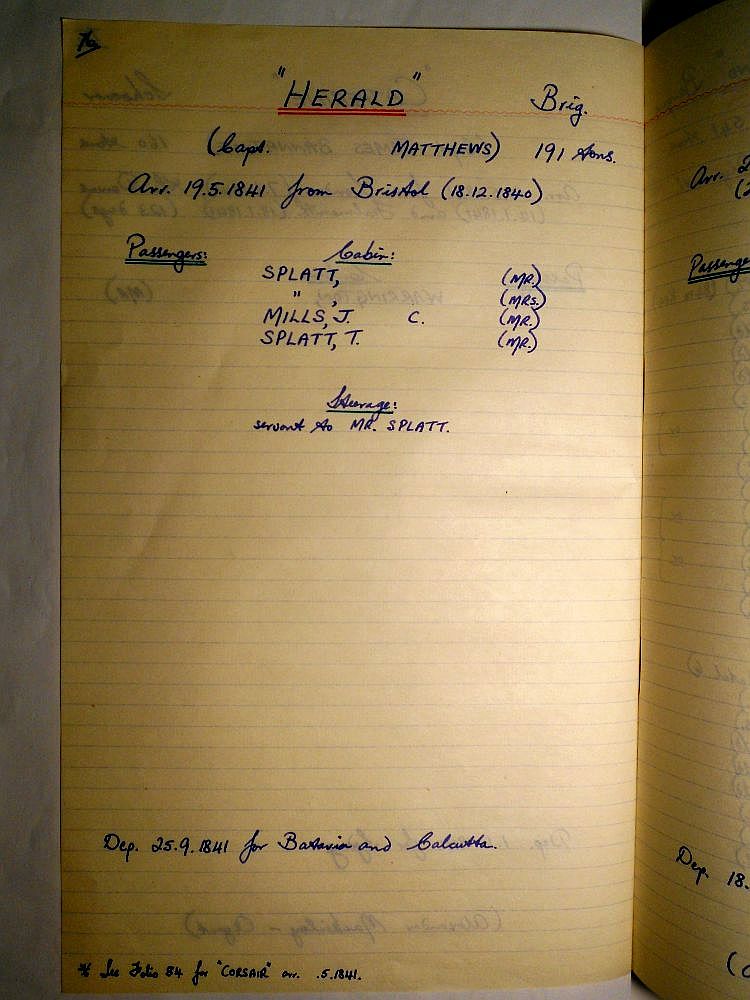 76
"HERALD" Brig.
(Capt. MATTHEWS) 191 tons.
Arr. 19.5.1841 from Bristol (18.12.1840)
Passengers: Cabin:
SPLATT, (MR.)
" , (MRS.)
MILLS, J. C. (MR.)
SPLATT, T. (MR.)
Steerage:
servant to MR. SPLATT.
Dep. 25.9.1841 for Batavia and Calcutta.
See Folio 84 for "CORSAIR" arr. .5.1841.
Arr. 2
Passenge
Dep. 18.